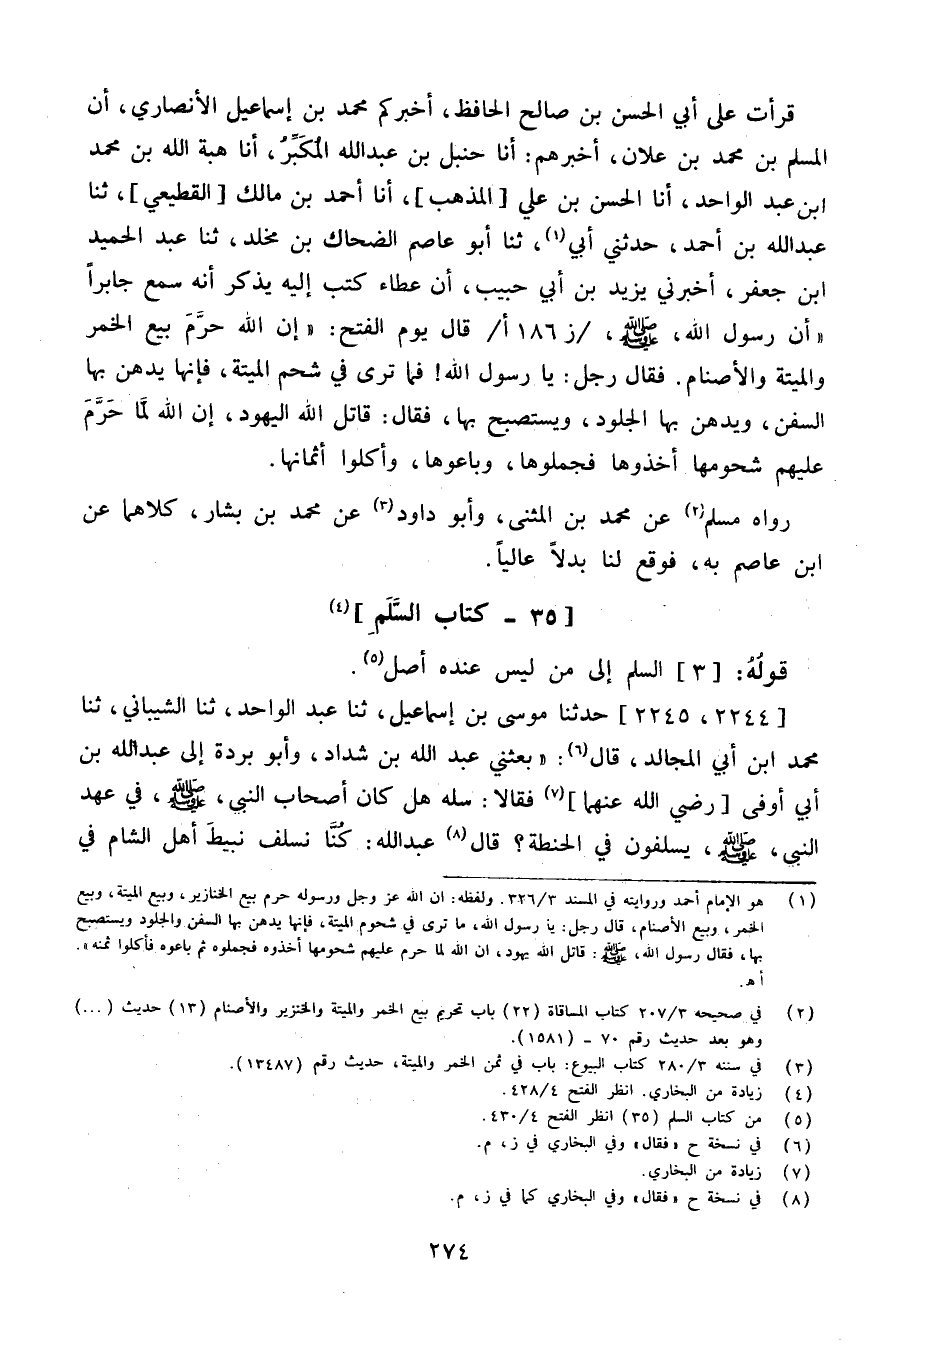 قرأت على أبي الحسن بن صالح الحافظ، أخبركم محمد بن إسماعيل الأنصاري، أن
المسلم بن محمد بن علان، أخبرهم: أنا حنبل بن عبدالله المُكَبِّرُ، أنا هبة الله بن محمد
ابن عبد الواحد، أنا الحسن بن علي [المذهب]، أنا أحمد بن مالك [القطيعي]، ثنا
عبدالله بن أحمد، حدثني أبي(١)، ثنا أبو عاصم الضحاك بن مخلد، ثنا عبد الحميد
ابن جعفر، أخبرني يزيد بن أبي حبيب، أن عطاء كتب إليه يذكر أنه سمع جابراً
«أن رسول الله، ﷺ، /ز ١٨٦ أ/ قال يوم الفتح: «إن الله حرَّمَ بيع الخمر
والميتة والأصنام. فقال رجل: يا رسول الله! فما ترى في شحم الميتة، فإنها يدهن بها
السفن، ويدهن بها الجلود، ويستصبح بها، فقال: قاتل الله اليهود، إن الله لمَّا حَرَّمَ
عليهم شحومها أخذوها فجملوها، وباعوها، وأكلوا أثمانها.
رواه مسلم(٢) عن محمد بن المثنى، وأبو داود(٣) عن محمد بن بشار، كلاهما عن
ابن عاصم به، فوقع لنا بدلاً عالياً.
[٣٥ ـ كتاب السَّلَمِ](٤)
قولُهُ: [٣] السلم إلى من ليس عنده أصل(٥).
[٢٢٤٤، ٢٢٤٥] حدثنا موسى بن إسماعيل، ثنا عبد الواحد، ثنا الشيباني، ثنا
محمد ابن أبي المجالد، قال(٦): «بعثني عبد الله بن شداد، وأبو بردة إلى عبدالله بن
أبي أوفى [رضي الله عنهما](٧) فقالا: سله هل كان أصحاب النبي، ﷺ، في عهد
النبي، ﷺ، يسلفون في الحنطة؟ قال(٨) عبدالله: كُنَّا نسلف نبيطَ أهل الشام في
(١) هو الإمام أحمد وروايته في المسند ٣٢٦/٣. ولفظه: ان الله عز وجل ورسوله حرم بيع الخنازير، وبيع الميتة، وبيع
الخمر، وبيع الأصنام، قال رجل: يا رسول الله، ما ترى في شحوم الميتة، فإنها يدهن بها السفن والجلود ويستصبح
بها، فقال رسول الله، ﷺ: قاتل الله يهود، ان الله لما حرم عليهم شحومها أخذوه فجملوه ثم باعوه فأكلوا ثمنه».
أ هـ.
(٢) في صحيحه ٢٠٧/٣ كتاب المساقاة (٢٢) باب تحريم بيع الخمر والميتة والخنزير والأصنام (١٣) حديث (...)
وهو بعد حديث رقم ٧٠ ـ (١٥٨١).
(٣) في سننه ٢٨٠/٣ كتاب البيوع: باب في ثمن الخمر والميتة، حديث رقم (١٣٤٨٧).
(٤) زيادة من البخاري. انظر الفتح ٤٢٨/٤.
(٥) من كتاب السلم (٣٥) انظر الفتح ٤٣٠/٤.
(٦) في نسخة ح «فقال» وفي البخاري في ز، م.
(٧) زيادة من البخاري.
(٨) في نسخة ح «فقال» وفي البخاري كما في ز، م.
٢٧٤